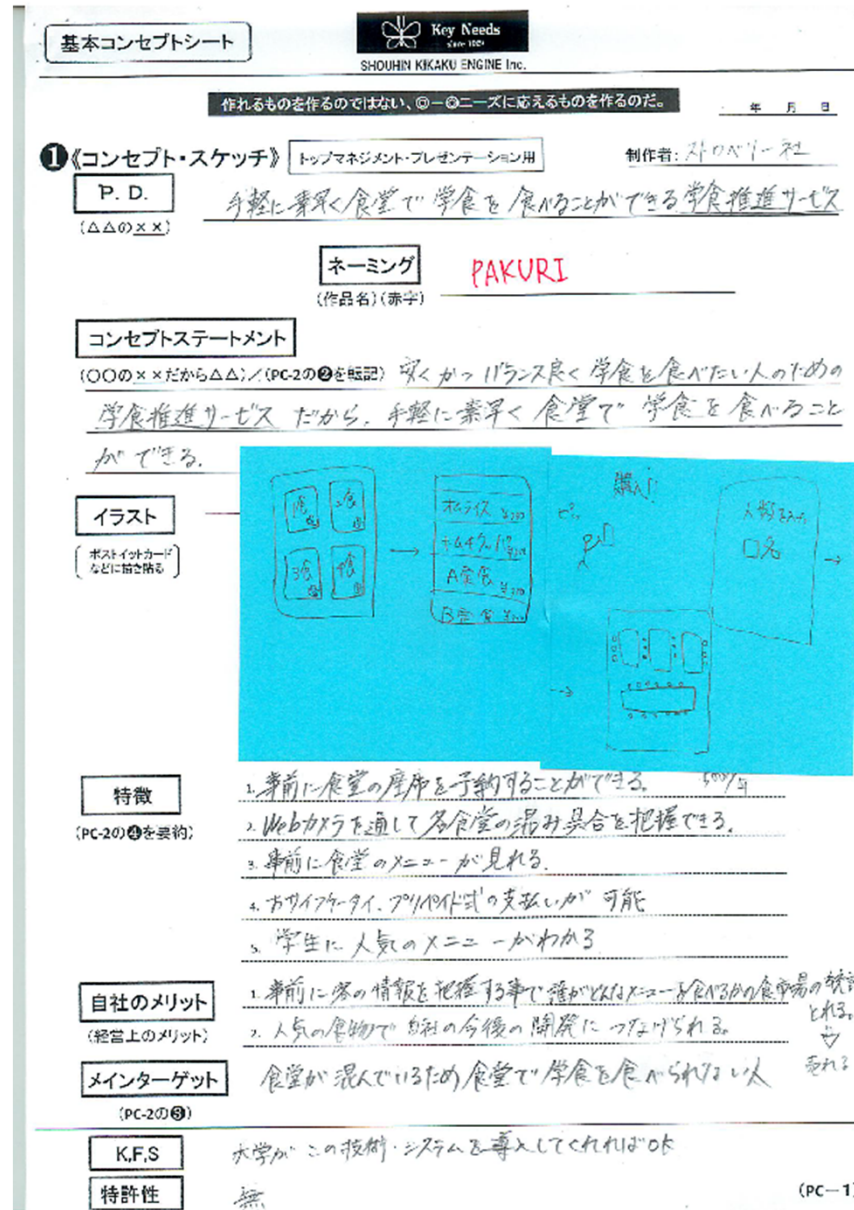 基本コンセプトシート
Key Needs
since 1989
SHOUHIN KIKAKU ENGINE Inc.
作れるものを作るのではない、◎−◎ニーズに応えるものを作るのだ。
年 月 日
❶《コンセプト・スケッチ》 トップマネジメント・プレゼンテーション用 制作者: ストロベリー社
P. D. 手軽に素早く食堂で学食を食べることができる学食推進サービス
(△△の××)
ネーミング PAKURI
(作品名)(赤字)
コンセプトステートメント
(〇〇の××だから△△)/(PC-2の❷を転記) 安くかつバランス良く学食を食べたい人のための
学食推進サービスだから、手軽に素早く食堂で学食を食べること
ができる。
イラスト
ポストイットカード
などに描き貼る
1食 2食
3食 4食
→
オムライス
A定食
B定食
購入!
ピッ
人数を入力
□名
→
→
特徴
(PC-2の❹を要約)
1. 事前に食堂の座席を予約することができる。
2. Webカメラを通して各食堂の混み具合を把握できる。
3. 事前に食堂のメニューが見れる。
4. おサイフケータイ、プリペイド式の支払いが可能
5. 学生に人気のメニューがわかる
自社のメリット
(経営上のメリット)
1. 事前に客の情報を把握する事で誰がどんなメニューを食べるかの食市場の統計
とれる。
⇩
売れる
2. 人気の食物で自社の今後の開発につなげられる。
メインターゲット 食堂が混んでいるため食堂で学食を食べられない人
(PC-2の❸)
K,F,S 大学がこの技術・システムを導入してくれればOK
特許性 無
(PC−1)